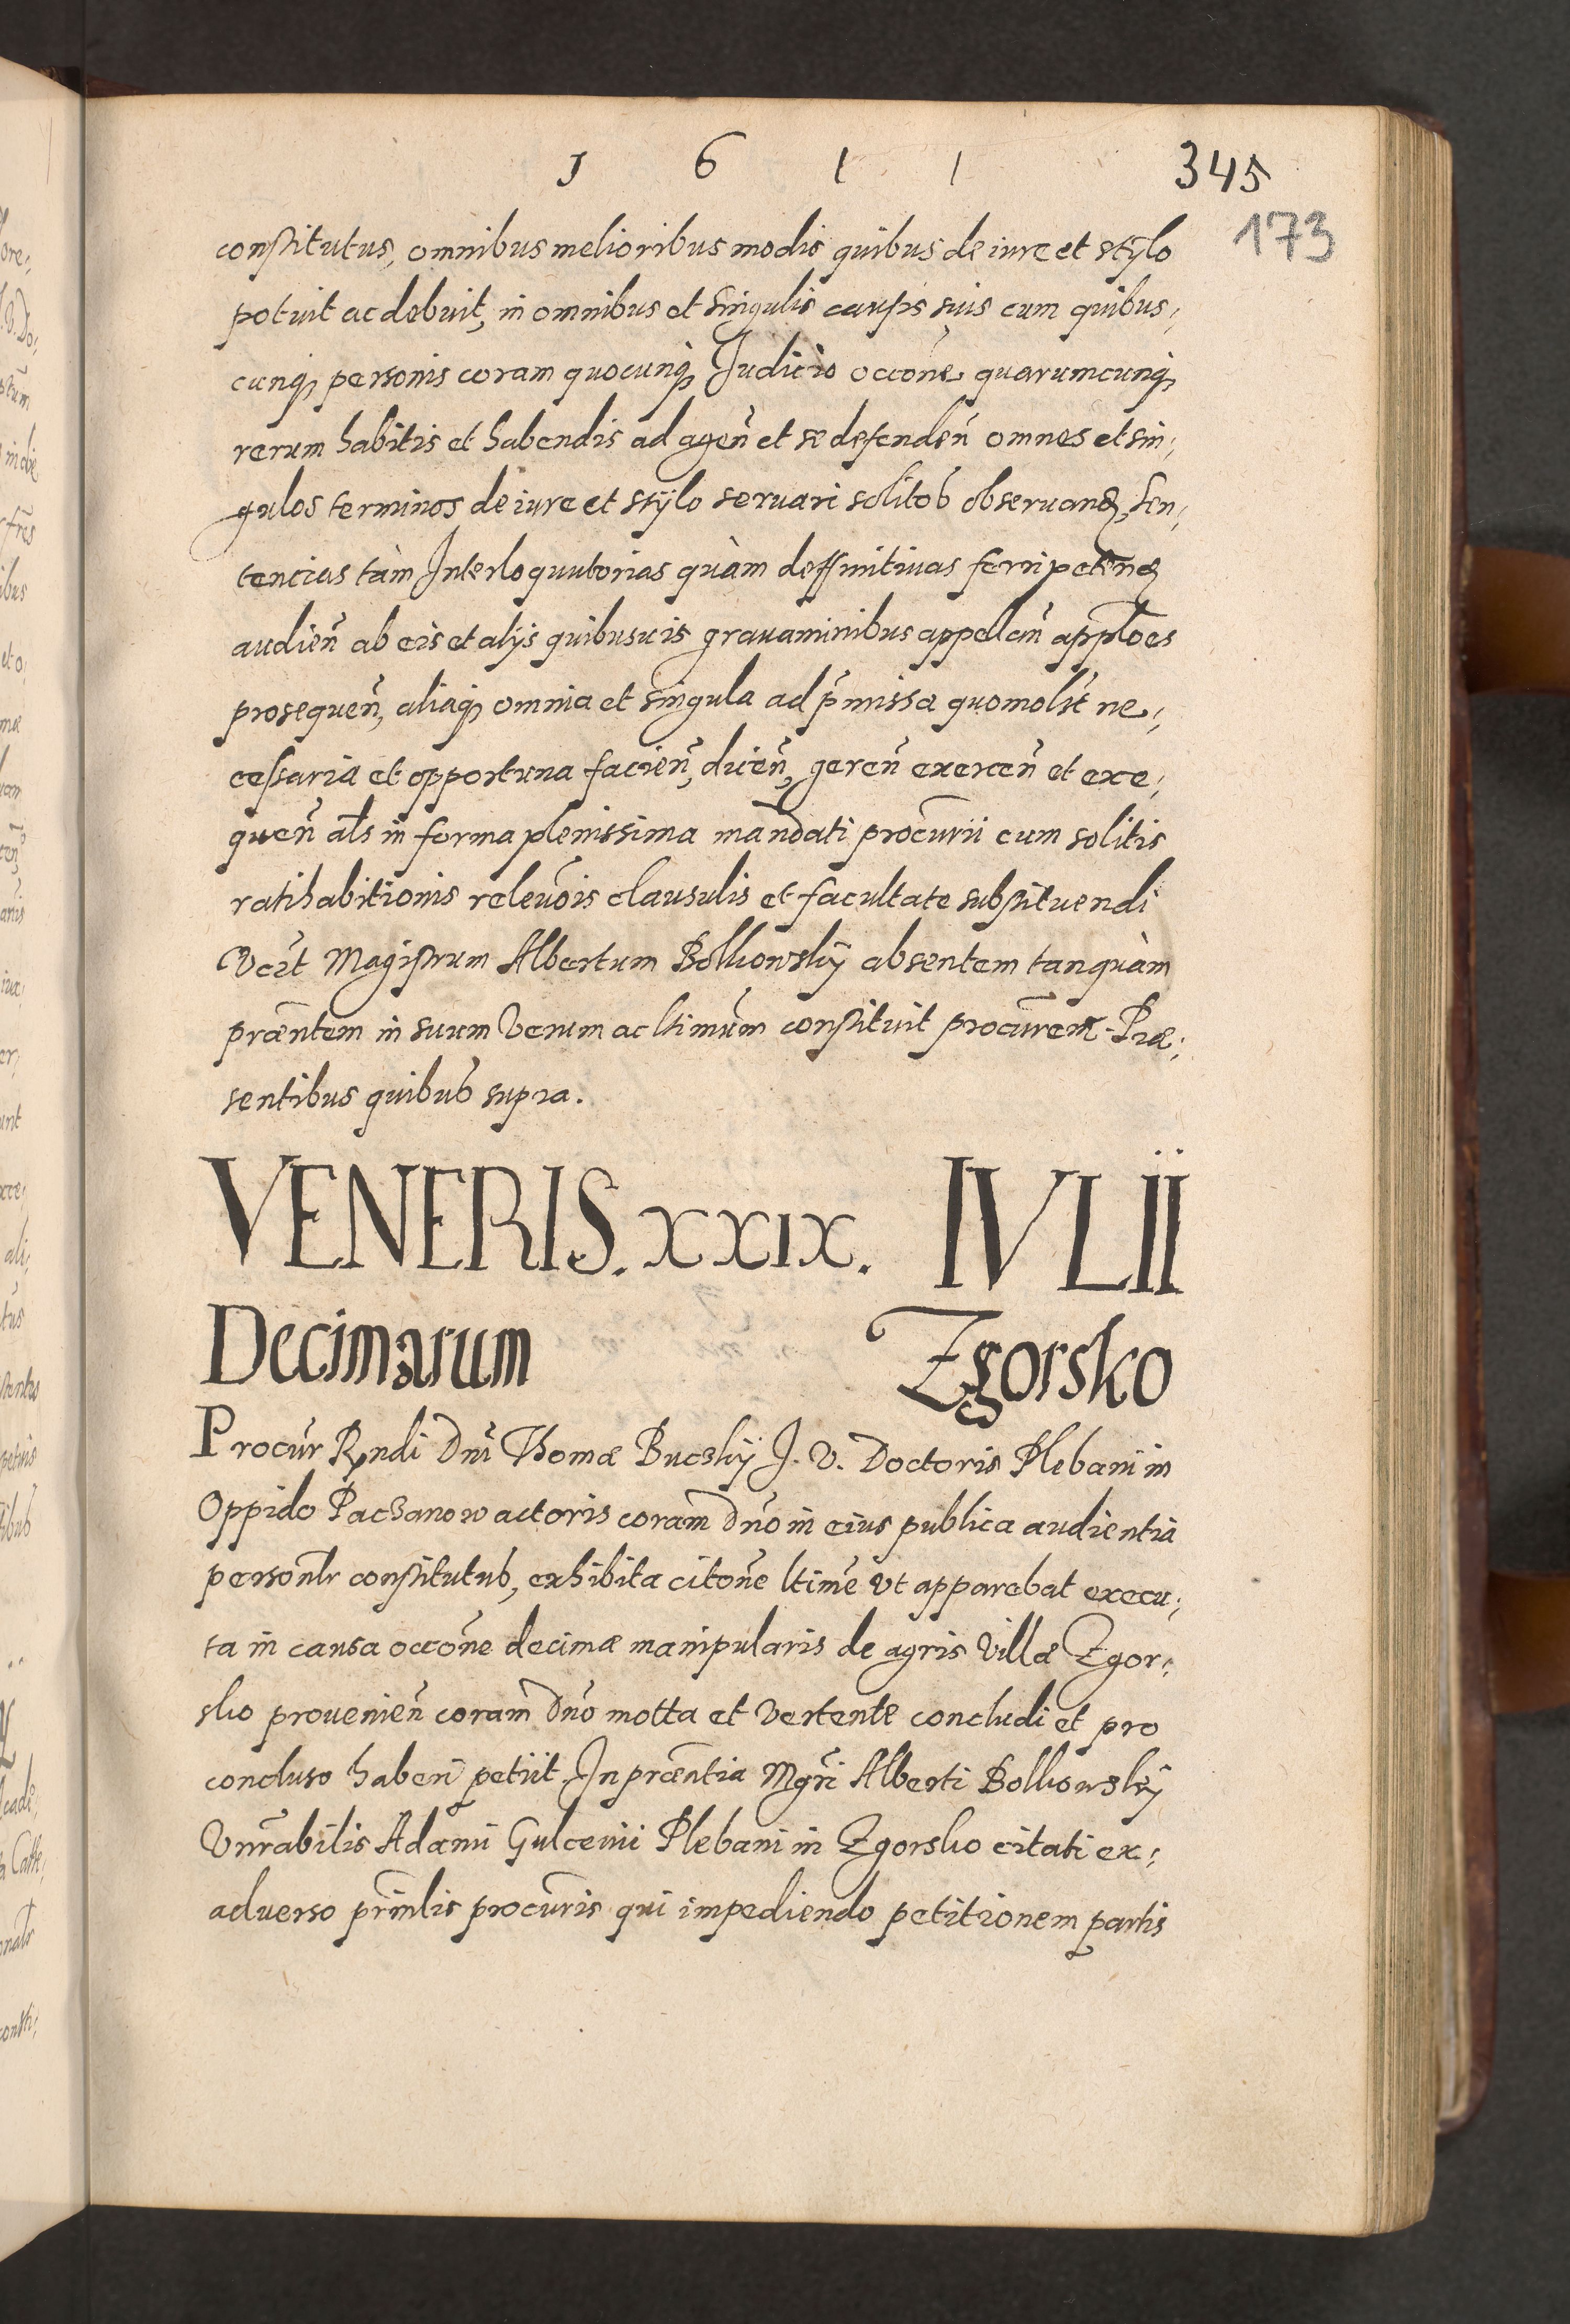 1 6 1 1
345
173
constitutus, omnibus melioribus modis quibus de iure et stÿlo
potuit ac debuit, in omnibus et singulis causis suis cum quibus;
cunq̃ personis coram quocunq̃ Judicio occõne quarumcunq̃
rerum habitis et habendis ad agen̄ et se defenden̄ omnes et sin;
gulos terminos de iure et stÿlo seruari solitos obseruand, Sen;
tencias tàm Interloquutorias quàm deffinitiuas ferri petend
audien̄ ab eis et alijs quibusuis grauaminibus appellan̄ appl̄oes
prosequen̄, aliaq̃ omnia et singula ad p̄missa quomolt̄ ne;
cessaria et opportuna facien̄, dicen̄, geren̄ exercen̄ et exe;
quen̄ al̄s in forma plenissima mandati procur̄ii cum solitis
ratihabitionis releuōis clausulis et facultate substituendi
Magistrum Albertum Bolkowskÿ absentem tanquàm
præn̄tem in suum verum ac ltimum̄ constituit procur̄em. Præ;
sentibus quibus supra.
VENERIS. XXIX. IVLII
Decimarum Zgorsko
Procur̄ Rn̄di Dn̄i Thomæ Bucskÿ J. V. Doctoris Plebani in
Oppido Paczanow actoris coram Dn̄o in eius publica audientia
person̄lr constitutus, exhibita citōne ltimē vt apparebat execu;
ta in causa occōne decimæ manipularis de agris Villæ Zgor;
sko prouenien̄ coram Dn̄o motta et vertente concludi et pro
concluso haberi petiit. In præn̄tia Mgr̄i Alberti Bolkowskÿ
Vnr̄abilis Adami Gulcenii Plebani in Zgorsko citati ex;
aduerso prin̄lis procur̄is qui impediendo petitionem partis